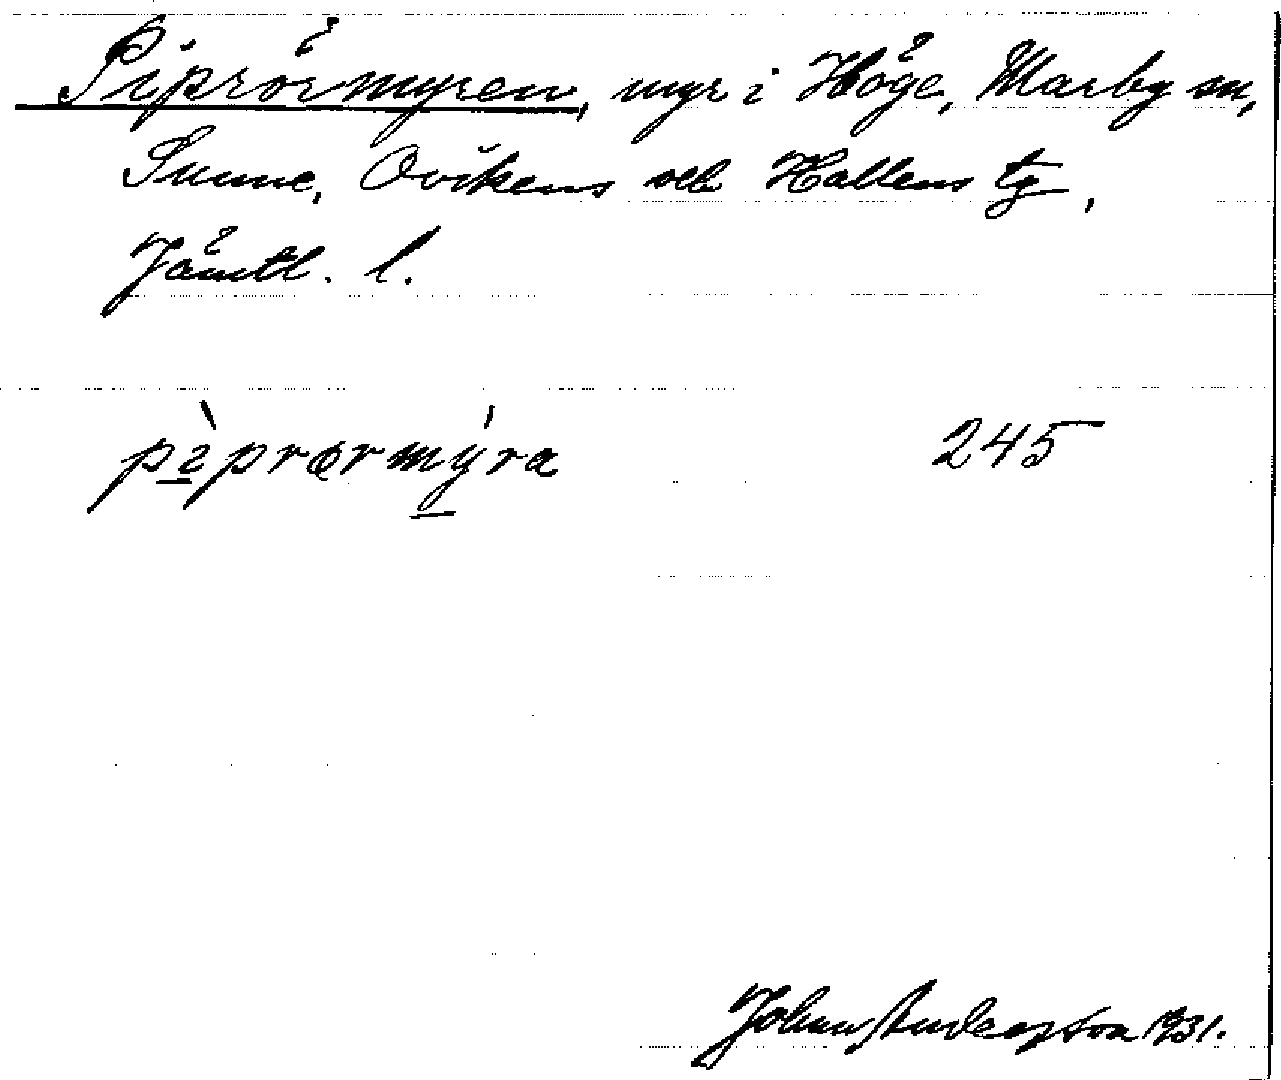 Piprörmyren, myr i Höge, Marby sn,
Sunne, Ovikens och Hallens tg,
Jämtl. l.
pìprørmýra 245
Johan Andersson 1931.